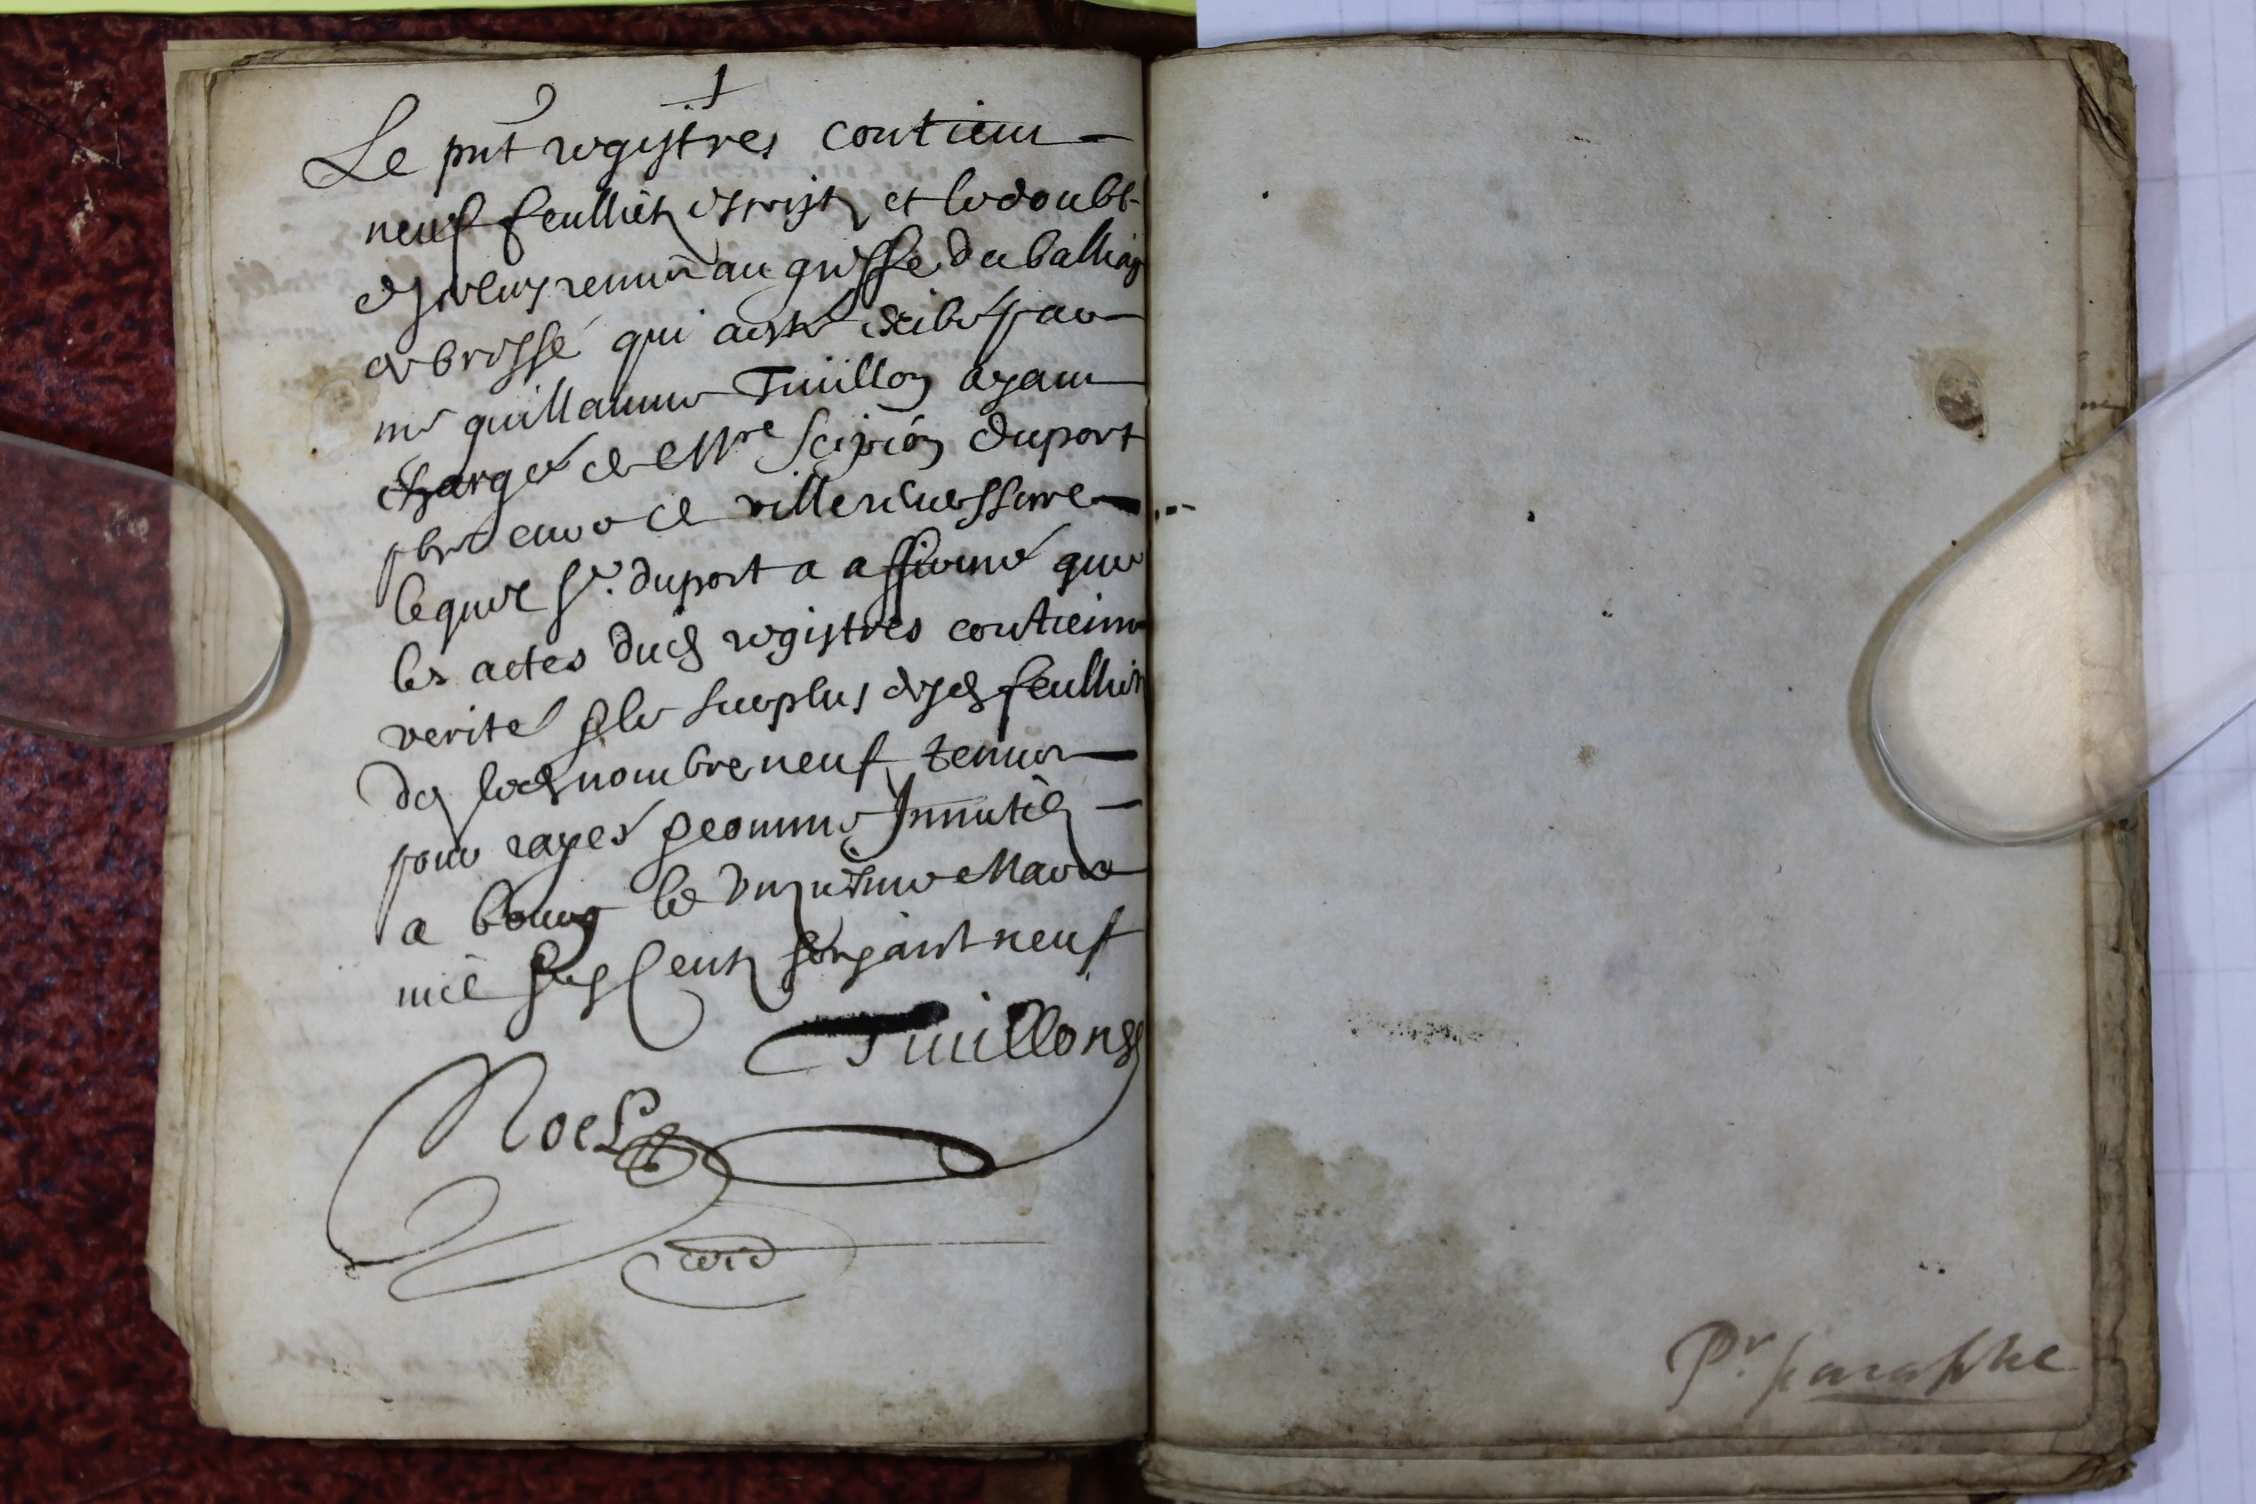 Le pnt registres contient
neuf feulliets escripts et le double
d'iceluy remis au greffe du balliage
de bresse qui a esté exibé par
me guillaume Tuillon ayant
chargé de Mre Scipion duport
pbre curé de villereversure
lequel sr. duport a affirmé que
les actes dud registres contienne
verité & le surplus desd feulliets
du led nombre neuf tenus
pour rayés & comme Innutiels
a bourg le unziesme Mars
mil six cents soixante neuf
Tuillon
Noel
Pr. paraphe